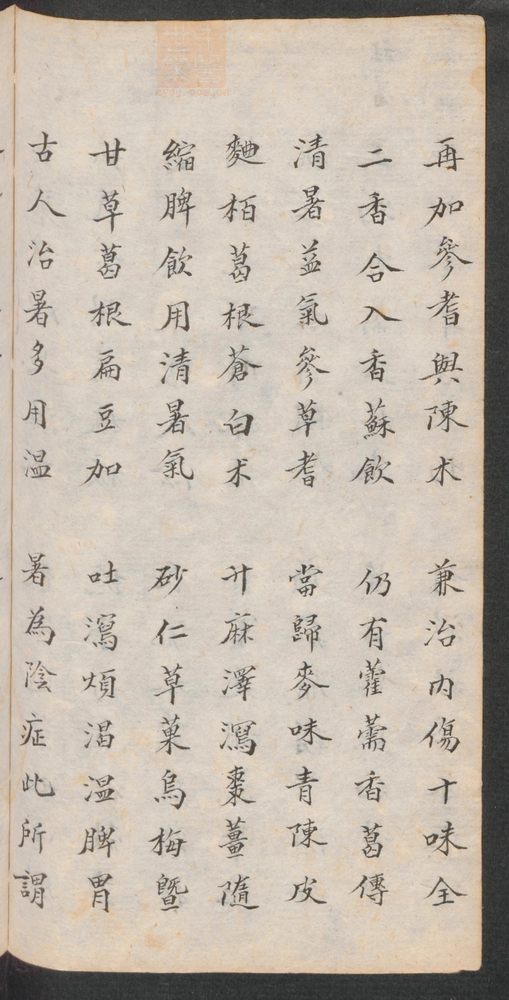 再加參耆與陳朮 兼治內傷十味全
二香合入香蘇飲 仍有藿薷香葛傳
清暑益氣參草耆 當歸麥味青陳皮
麯栢葛根蒼白朮 升麻澤瀉棗薑隨
縮脾飲用清暑氣 砂仁草菓烏梅暨
甘草葛根扁豆加 吐瀉煩渴溫脾胃
古人治暑多用溫 暑為陰症此所謂